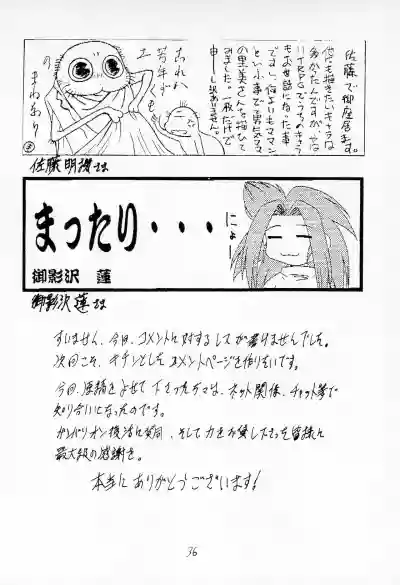 佐藤で御座居ます。
他にも描きたいキャラは
多かったんですが、
TRPGでうちのキャラ
もお世話になった事
ですし、何よりもママン
という事で男気ママ
の里美さんを描いて
みました。一枚だけで
申し訳ありません。
これれ
芳年ず
佐藤明謹さま
まったり・・・
にょー
御影沢 蓮
御影沢 蓮さま
すいません、今回、コメントに対するレスが書けませんでした。
次回こそ、キチンとしたコメントページを作りたいです。
今回、原稿をよせて下さった方々は、ネット関係、チャット等で
知り合いになったのです。
ガンバリオン復活に賛同、そして力をお貸し下さった皆様に
最大級の感謝を。
本当にありがとうございます!
36